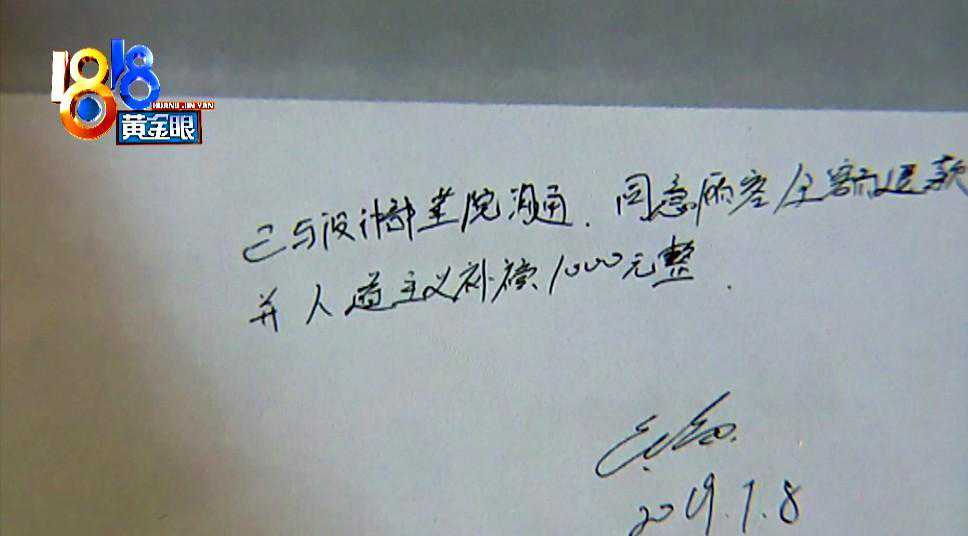 1818
HUANG JIN YAN
黄金眼
已与设计 业院沟通、同意顾客全额退款
并人道主义补偿1000元整.
2019.7.8